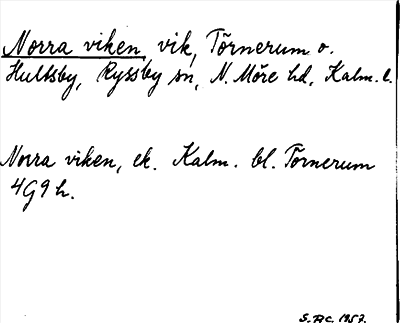 Norra viken, vik, Törnerum o.
Hultsby, Ryssby sn, N. Möre hd, Kalm. l.
Norra viken, ek. Kalm. bl. Törnerum
4G9h.
1957.